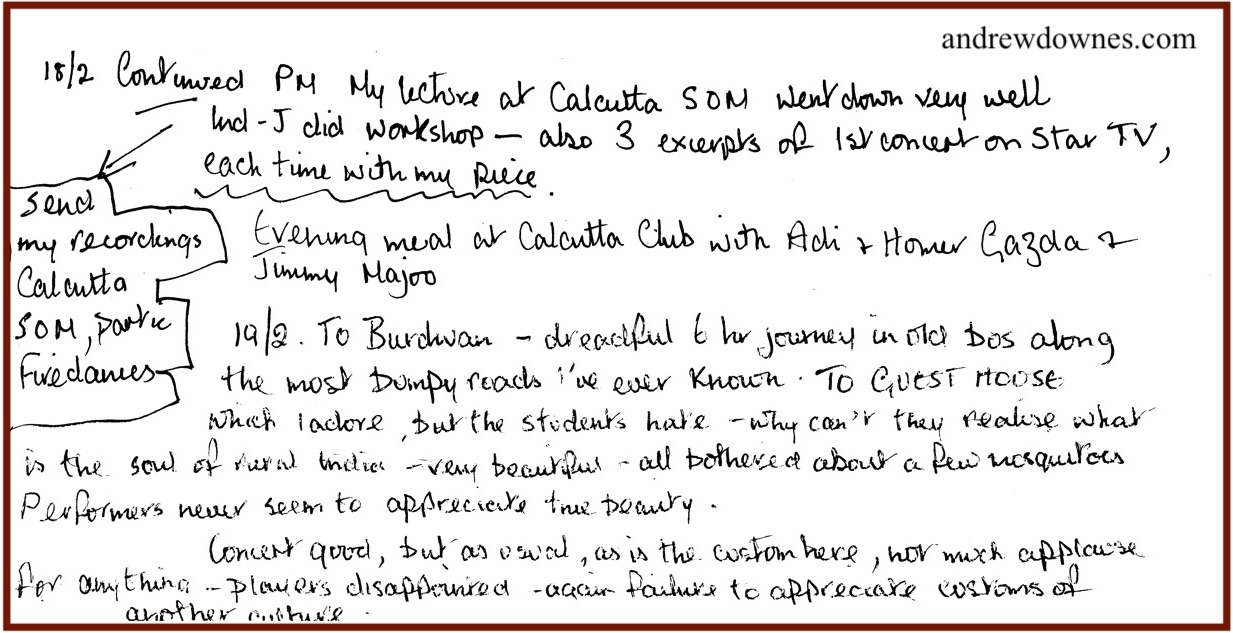 andrewdownes.com
18/2 Continued PM My lecture at Calcutta SOM went down very well
did workshop – also 3 excerpts of 1st concert on Star TV,
each time with my piece.
Send
my recordings
Calcutta
SOM, partic
Firedances
Evening meal at Calcutta Club with Adi + Homer Gazda +
Jimmy Majoo
19/2. To Burdwan – dreadful 6 hr journey in old bus along
the most bumpy roads I've ever known. TO GUEST HOUSE
which I adore, but the students hate – why can't they realise what
is the soul of rural India – very beautiful – all bothered about a few mosquitoes
Performers never seem to appreciate true beauty.
Concert good, but as usual, as is the custom here, not much applause
for anything – players disappointed – again failure to appreciate customs of
another culture.